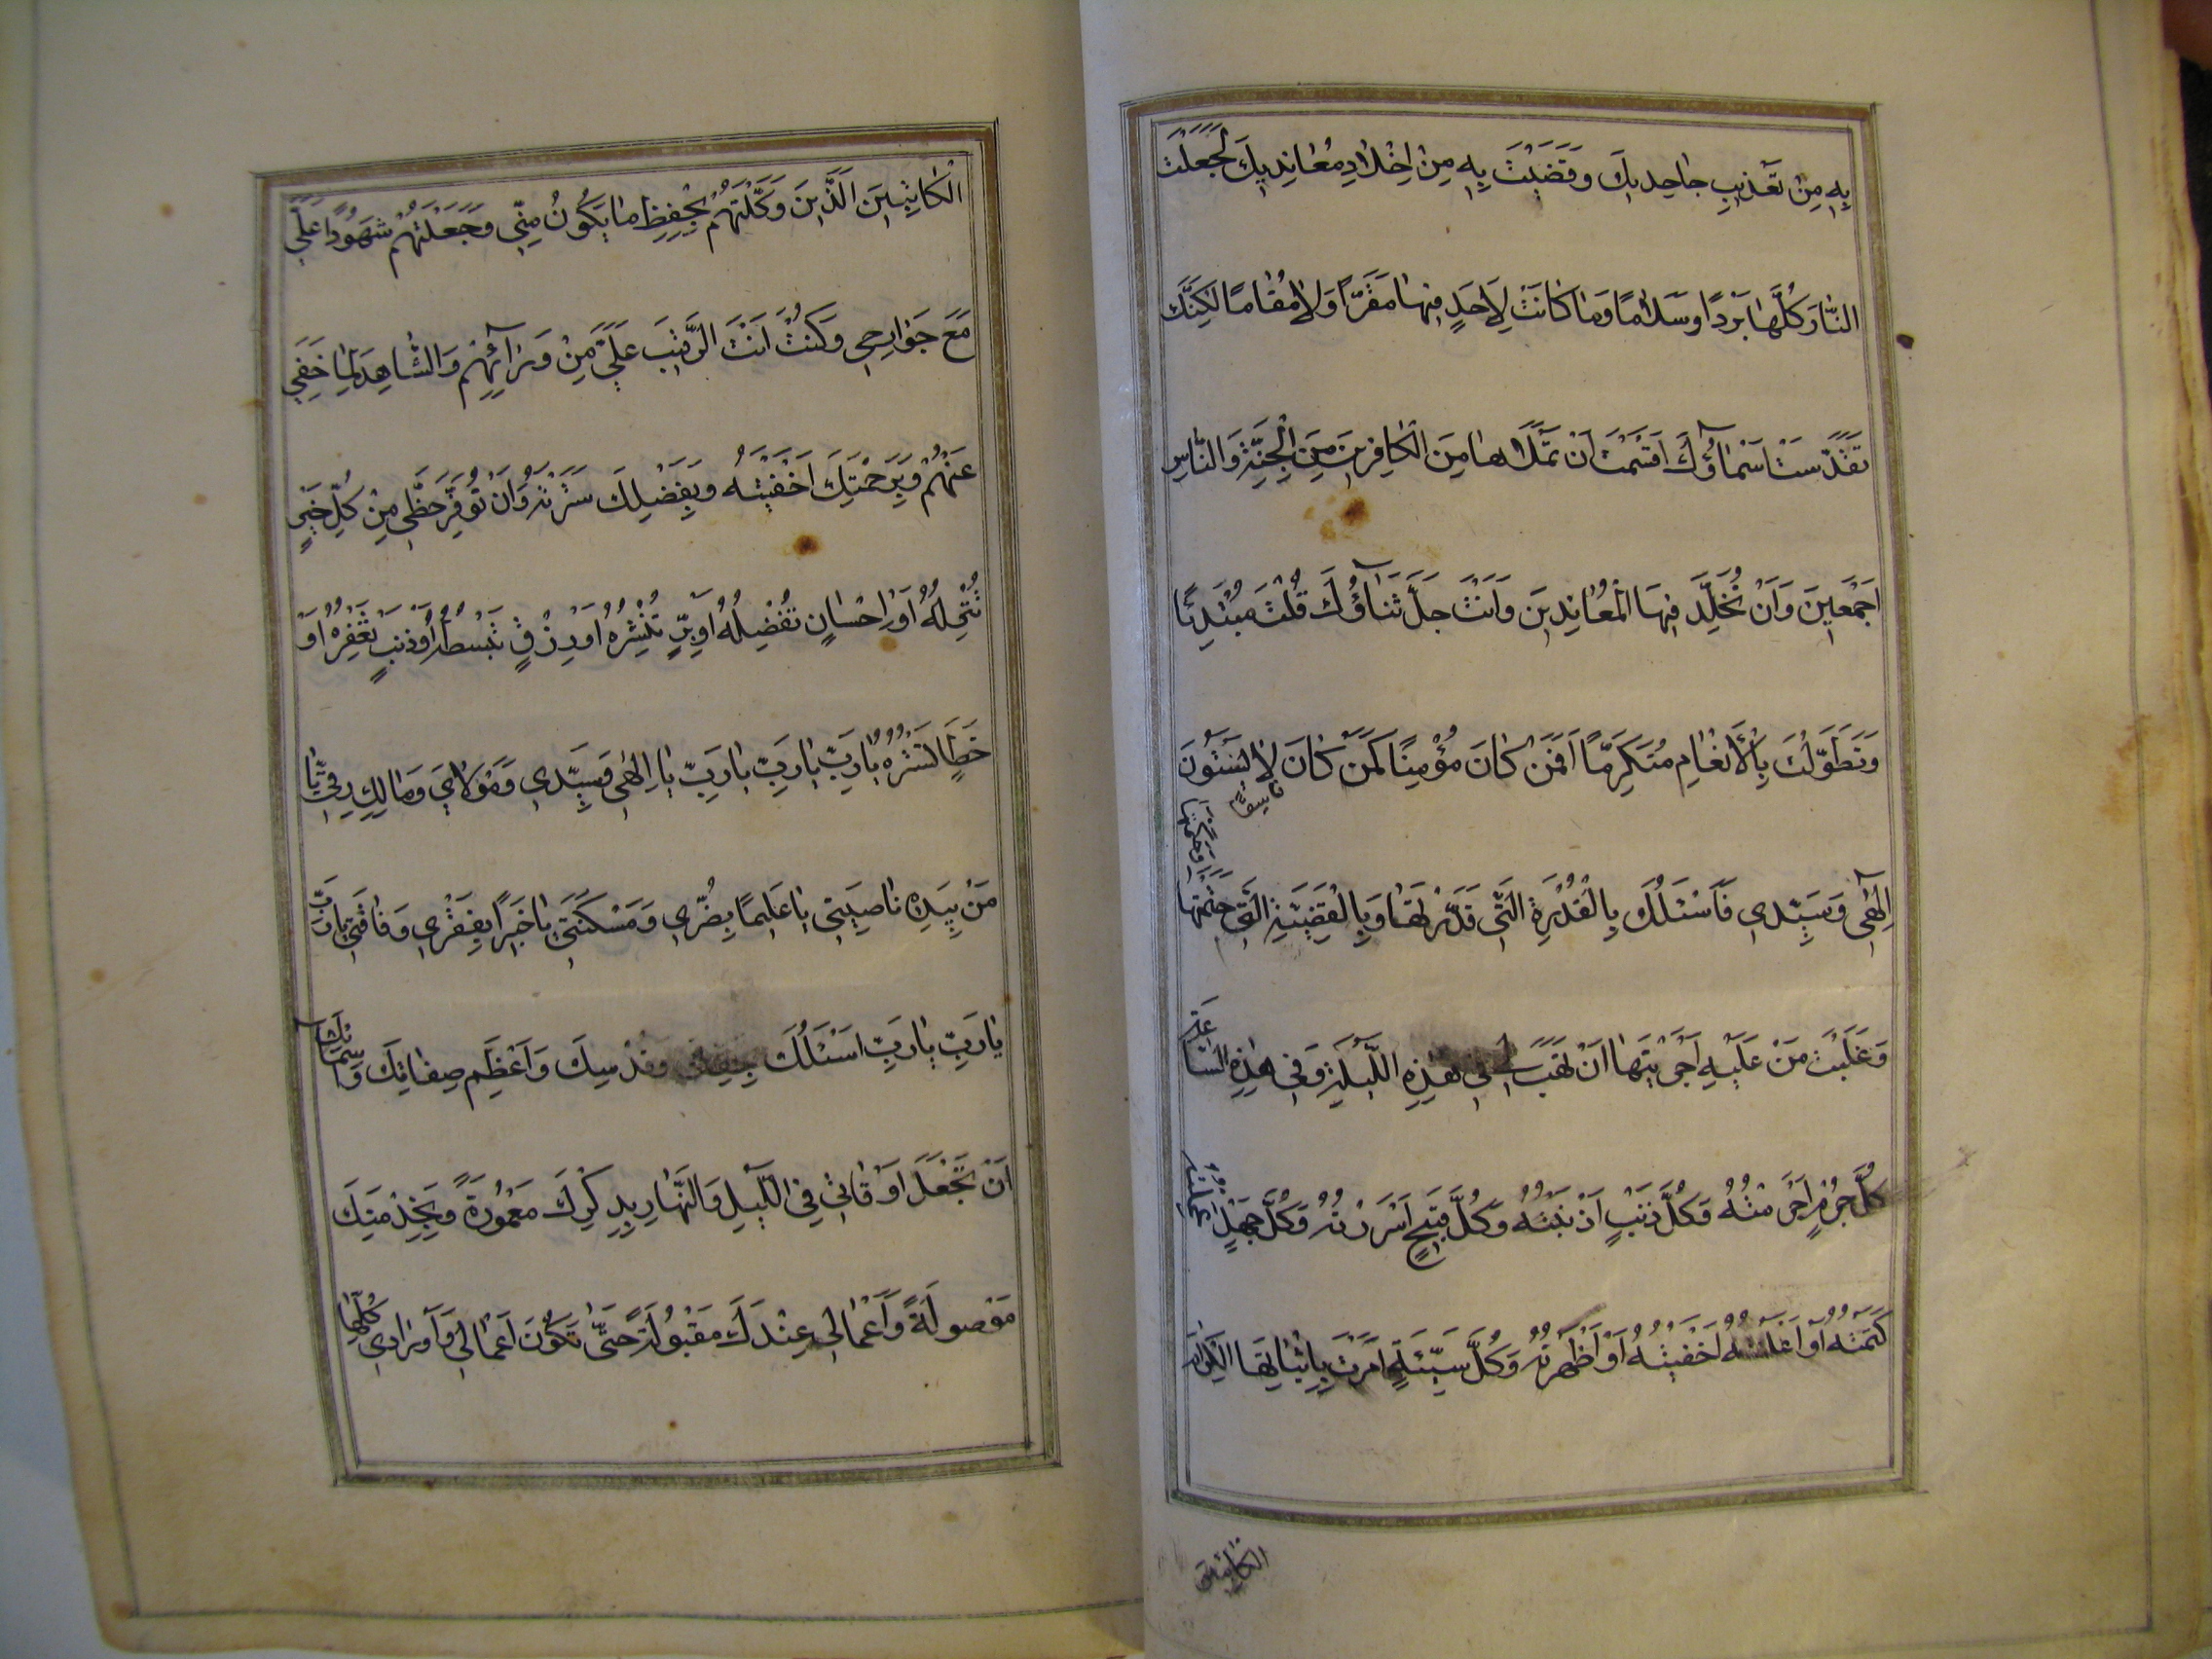 بِهِ مِنْ تَعْذِيبِ جَاحِدِيكَ وَقَضَيْتَ بِهِ مِنْ اِخْلَادِ مُعَانِدِيكَ لَجَعَلْتَ
النَّارَ كُلَّهَا بَرْدًا وَسَلَامًا وَمَا كَانَتْ لِاَحَدٍ فِيهَا مَقَرًّا وَلَا مُقَامًا لَكِنَّكَ
تَقَدَّسَتْ اَسْمَآؤُكَ اَقْسَمْتَ اَنْ تَمْلَاَهَا مِنَ الْكَافِرِينَ مِنَ الْجِنَّةِ وَالنَّاسِ
اَجْمَعِينَ وَاَنْ تُخَلِّدَ فِيهَا الْمُعَانِدِينَ وَاَنْتَ جَلَّ ثَنَآؤُكَ قُلْتَ مُبْتَدِئًا
وَتَطَوَّلْتَ بِالْاَنْعَامِ مُتَكَرِّمًا اَفَمَنْ كَانَ مُؤْمِنًا كَمَنْ كَانَ فَاسِقًا لَا يَسْتَوُونَ
اِلَهِي وَسَيِّدِي فَاَسْئَلُكَ بِالْقُدْرَةِ الَّتِي قَدَّرْتَهَا وَبِالْقَضِيَّةِ الَّتِي حَتَمْتَهَا وَحَكَمْتَهَا
وَغَلَبْتَ مَنْ عَلَيْهِ اَجْرَيْتَهَا اَنْ تَهَبَ لِي فِي هَذِهِ اللَّيْلَةِ وَفِي هَذِهِ السَّاعَةِ
كُلَّ جُرْمٍ اَجْرَمْتُهُ وَكُلَّ ذَنْبٍ اَذْنَبْتُهُ وَكُلَّ قَبِيحٍ اَسْرَرْتُهُ وَكُلَّ جَهْلٍ عَمِلْتُهُ
كَتَمْتُهُ اَوْ اَعْلَنْتُهُ اَخْفَيْتُهُ اَوْ اَظْهَرْتُهُ وَكُلَّ سَيِّئَةٍ اَمَرْتَ بِاِثْبَاتِهَا الْكِرَامَ
الكاتبين
الْكَاتِبِينَ الَّذِينَ وَكَّلْتَهُمْ بِحِفْظِ مَا يَكُونُ مِنِّي وَجَعَلْتَهُمْ شُهُودًا عَلَيَّ
مَعَ جَوَارِحِي وَكُنْتَ اَنْتَ الرَّقِيبَ عَلَيَّ مِنْ وَرَآئِهِمْ وَالشَّاهِدَ لِمَا خَفِيَ
عَنْهُمْ وَبِرَحْمَتِكَ اَخْفَيْتَهُ وَبِفَضْلِكَ سَتَرْتَهُ وَاَنْ تُوَفِّرَ حَظِّي مِنْ كُلِّ خَيْرٍ
تُنْزِلُهُ اَوْ اِحْسَانٍ تُفْضِلُهُ اَوْ بِرٍّ تَنْشُرُهُ اَوْ رِزْقٍ تَبْسُطُهُ اَوْ ذَنْبٍ تَغْفِرُهُ اَوْ
خَطَاٍ تَسْتُرُهُ يَا رَبِّ يَا رَبِّ يَا رَبِّ يَا اِلَهِي وَسَيِّدِي وَمَوْلَايَ وَمَالِكَ رِقِّي يَا
مَنْ بِيَدِهِ نَاصِيَتِي يَا عَلِيمًا بِضُرِّي وَمَسْكَنَتِي يَا خَبِيرًا بِفَقْرِي وَفَاقَتِي يَا رَبِّ
يَا رَبِّ يَا رَبِّ اَسْئَلُكَ بِحَقِّكَ وَقُدْسِكَ وَاَعْظَمِ صِفَاتِكَ وَاَسْمَآئِكَ
اَنْ تَجْعَلَ اَوْقَاتِي فِي اللَّيْلِ وَالنَّهَارِ بِذِكْرِكَ مَعْمُورَةً وَبِخِدْمَتِكَ
مَوْصُولَةً وَاَعْمَالِي عِنْدَكَ مَقْبُولَةً حَتَّى تَكُونَ اَعْمَالِي وَاَوْرَادِي كُلُّهَا